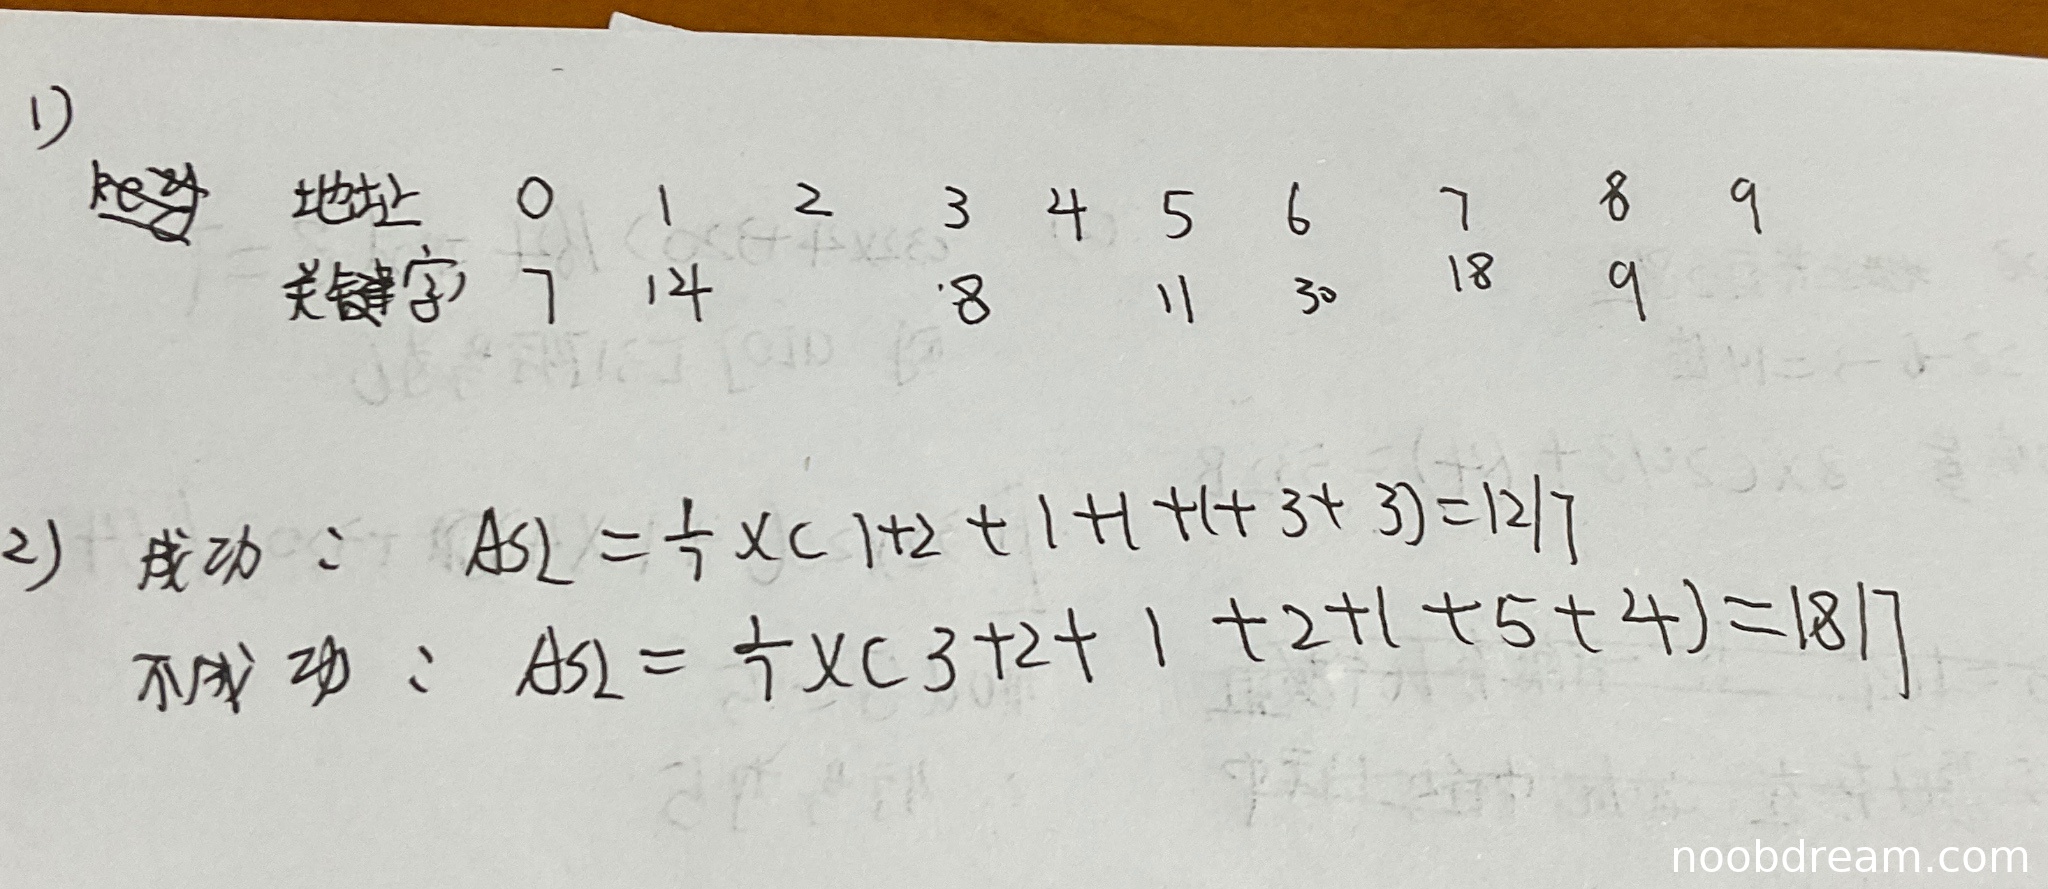 1)
地址 0 1 2 3 4 5 6 7 8 9
关键字 7 14 8 11 30 18 9
2) 成功: ASL = 1/7 x( 1+2+1+1+1+3+3)=12/7
不成功: ASL = 1/7 x( 3+2+1+2+1+5+4)=18/7
noobdream.com